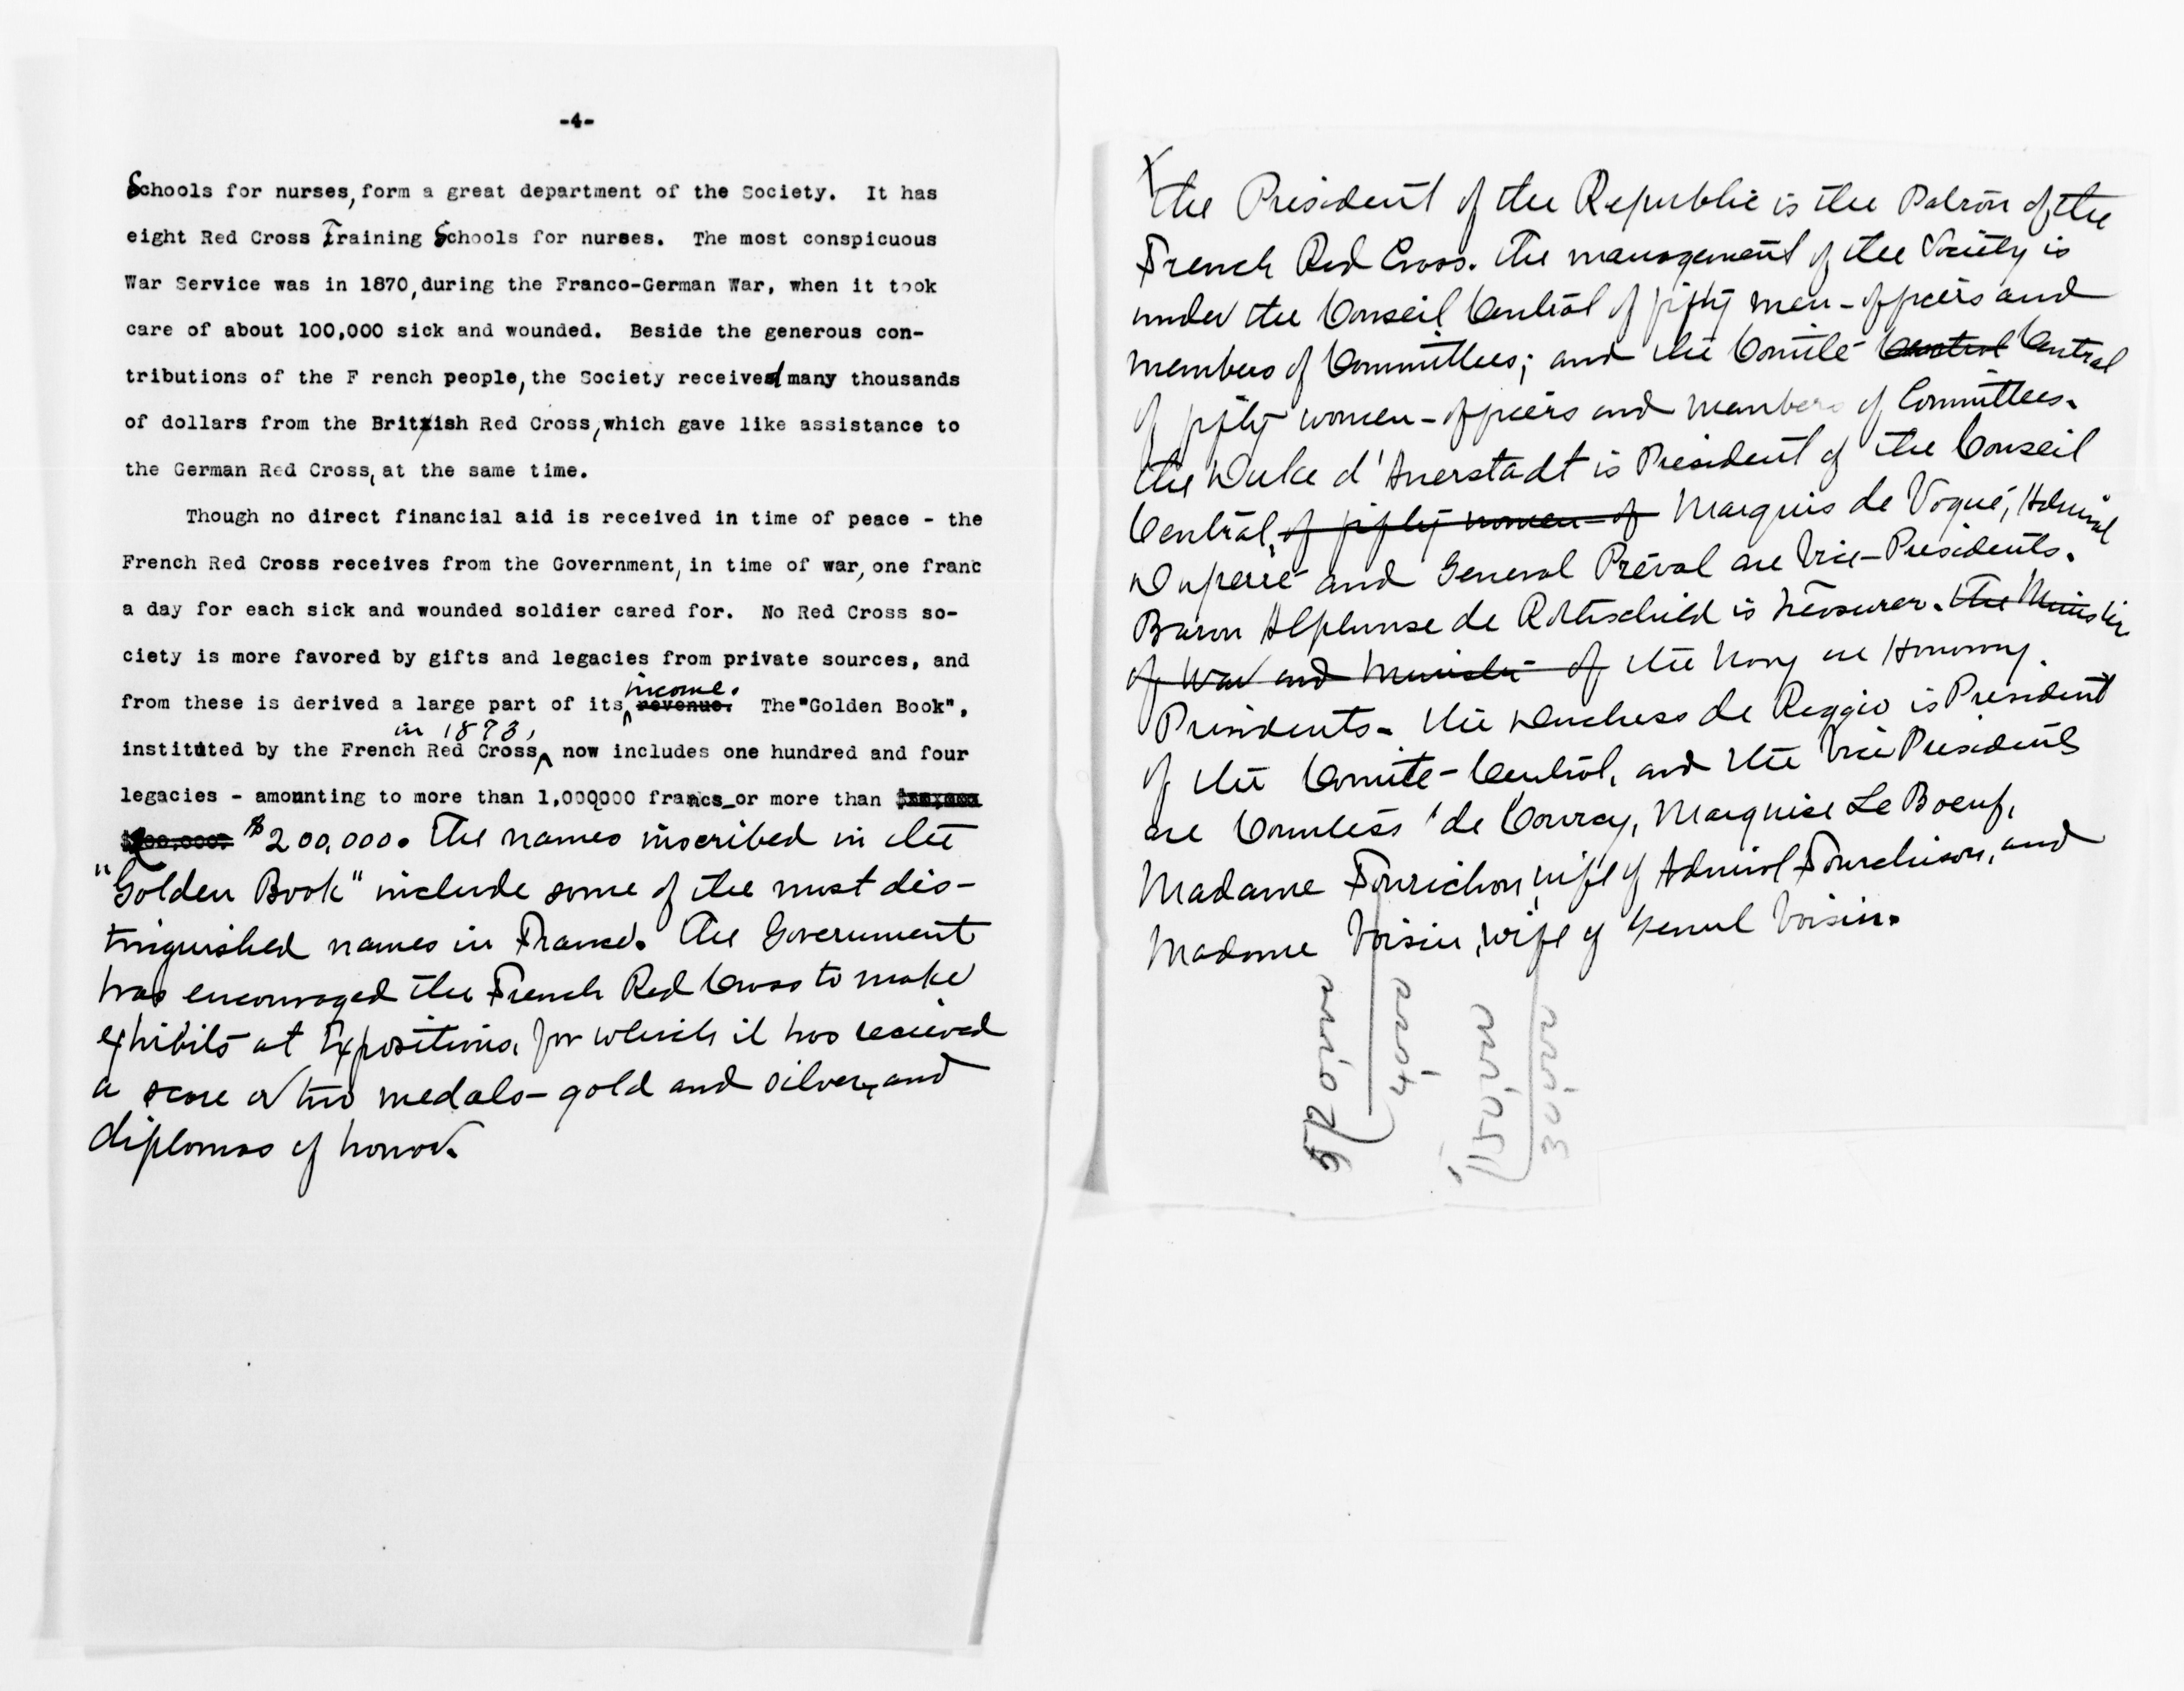 -4-
Schools for nurses, form a great department of the Society. It has
eight Red Cross Training Schools for nurses. The most conspicuous
War Service was in 1870, during the Franco-German War, when it took
care of about 100,000 sick and wounded. Beside the generous con-
tributions of the F rench people, the Society received many thousands
of dollars from the British Red Cross, which gave like assistance to
the German Red Cross, at the same time.
Though no direct financial aid is received in time of peace - the
French Red Cross receives from the Government, in time of war, one franc
a day for each sick and wounded soldier cared for. No Red Cross so-
ciety is more favored by gifts and legacies from private sources, and
from these is derived a large part of its income. revenue. The "Golden Book",
instituted by the French Red Cross, in 1873, now includes one hundred and four
legacies - amounting to more than 1,000,000 francs or more than
$200,000. The names inscribed in the
"Golden Book" include some of the most dis-
tinguished names in France. The Government
has encouraged the French Red Cross to make
exhibits at Expositions, for which it has recieved
a score or two medals - gold and silver, and
diplomas of honor.
X
The President of the Republic is the Patron of the
French Red Cross. The management of the Society is
under the Conseil Central of fifty men - officers and
members of Committees; and the Comité Central Central
of fifty women - officers and members of Committees.
The Duke d'Auerstadt is President of the Conseil
Central, of fifty women of Marquis de Vogué, Admiral
Duperré and General Préval are Vice-Presidents.
Baron Alphonse de Rothschild is Treasurer. The Minister
of War and Minister of the Navy are Honorary
Presidents. The Duchess de Reggio is President
of the Comite-Central, and the Vice Presidents
are Comtess de Courcy, Marquise Le Boeuf,
Madame Fourichon, wife of Admiral Fourchison, and
Madame Voisin, wife of General Voisin.